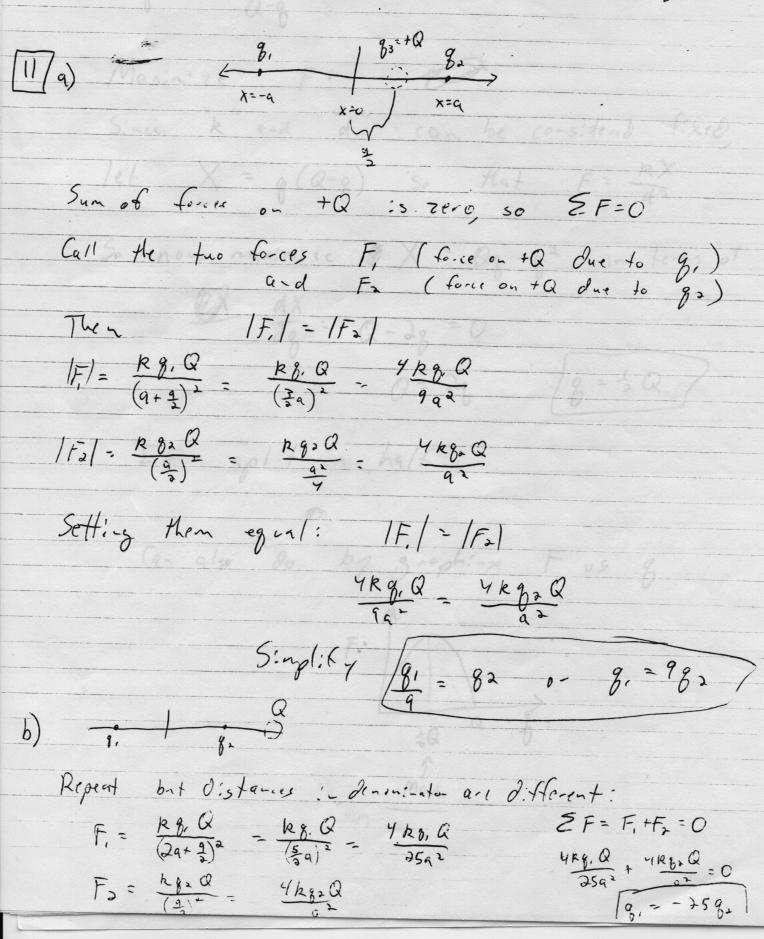 11 a)
q₁ q₃=+Q q₂
x=-a x=0 x=a
a/2
Sum of forces on +Q is zero, so ΣF=0
Call the two forces F₁ (force on +Q due to q₁)
and F₂ (force on +Q due to q₂)
Then |F₁| = |F₂|
|F₁| = kq₁Q/(a+a/2)² = kq₁Q/(3/2a)² = 4kq₁Q/9a²
|F₂| = kq₂Q/(a/2)² = kq₂Q/(a²/4) = 4kq₂Q/a²
Setting them equal: |F₁| = |F₂|
4kq₁Q/9a² = 4kq₂Q/a²
Simplify q₁/9 = q₂ or q₁ = 9q₂
b) q₁ q₂ Q
Repeat but distances in denominator are different:
F₁ = kq₁Q/(2a+a/2)² = kq₁Q/(5/2a)² = 4kq₁Q/25a²
F₂ = kq₂Q/(a/2)² = 4kq₂Q/a²
ΣF = F₁+F₂ = 0
4kq₁Q/25a² + 4kq₂Q/a² = 0
q₁ = -25q₂